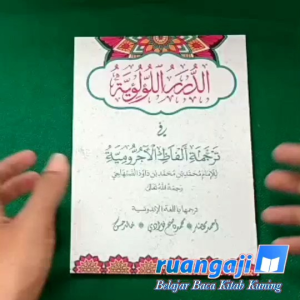 الدُّرَرُ اللُّؤْلُؤِيَّةُ
فِي
تَرْجَمَةِ أَلْفَاظِ الْآجُرُّومِيَّةِ
للإمام محمد بن محمد بن داود الصنهاجي
رحمه الله تعالى
ترجمها باللغة الإندونيسية
ruangaji
Belajar Baca Kitab Kuning